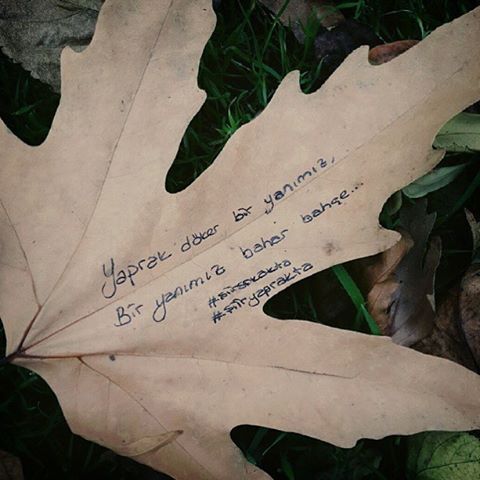 Yaprak döker bir yanımız,
Bir yanımız bahar bahçe...
#siirsokakta
#siiryaprakta